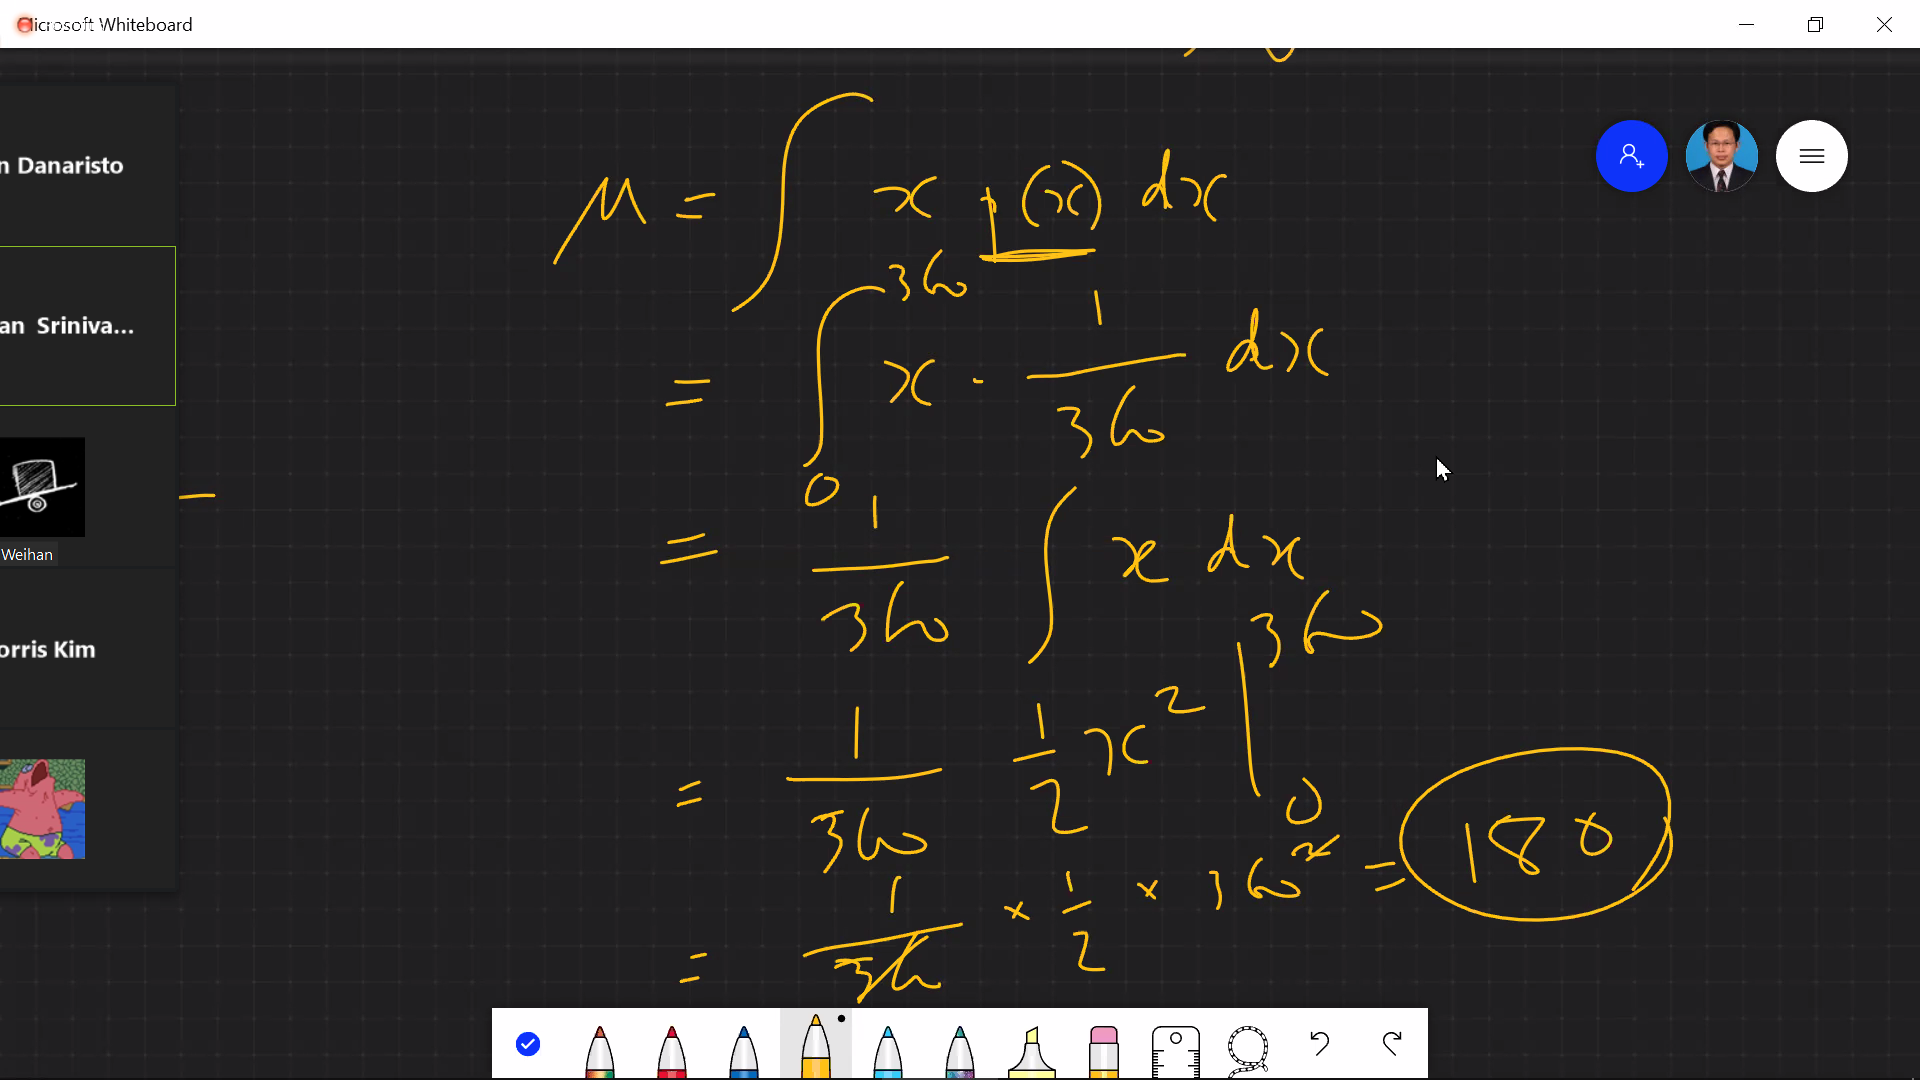 Microsoft Whiteboard
n Danaristo
an Sriniva...
Weihan
orris Kim
μ = ∫ x p(x) dx
= ∫₀³⁶⁰ x · 1/360 dx
= 1/360 ∫ x dx
= 1/360 1/2 x² |₀³⁶⁰
= 1/360 × 1/2 × 360² = 180